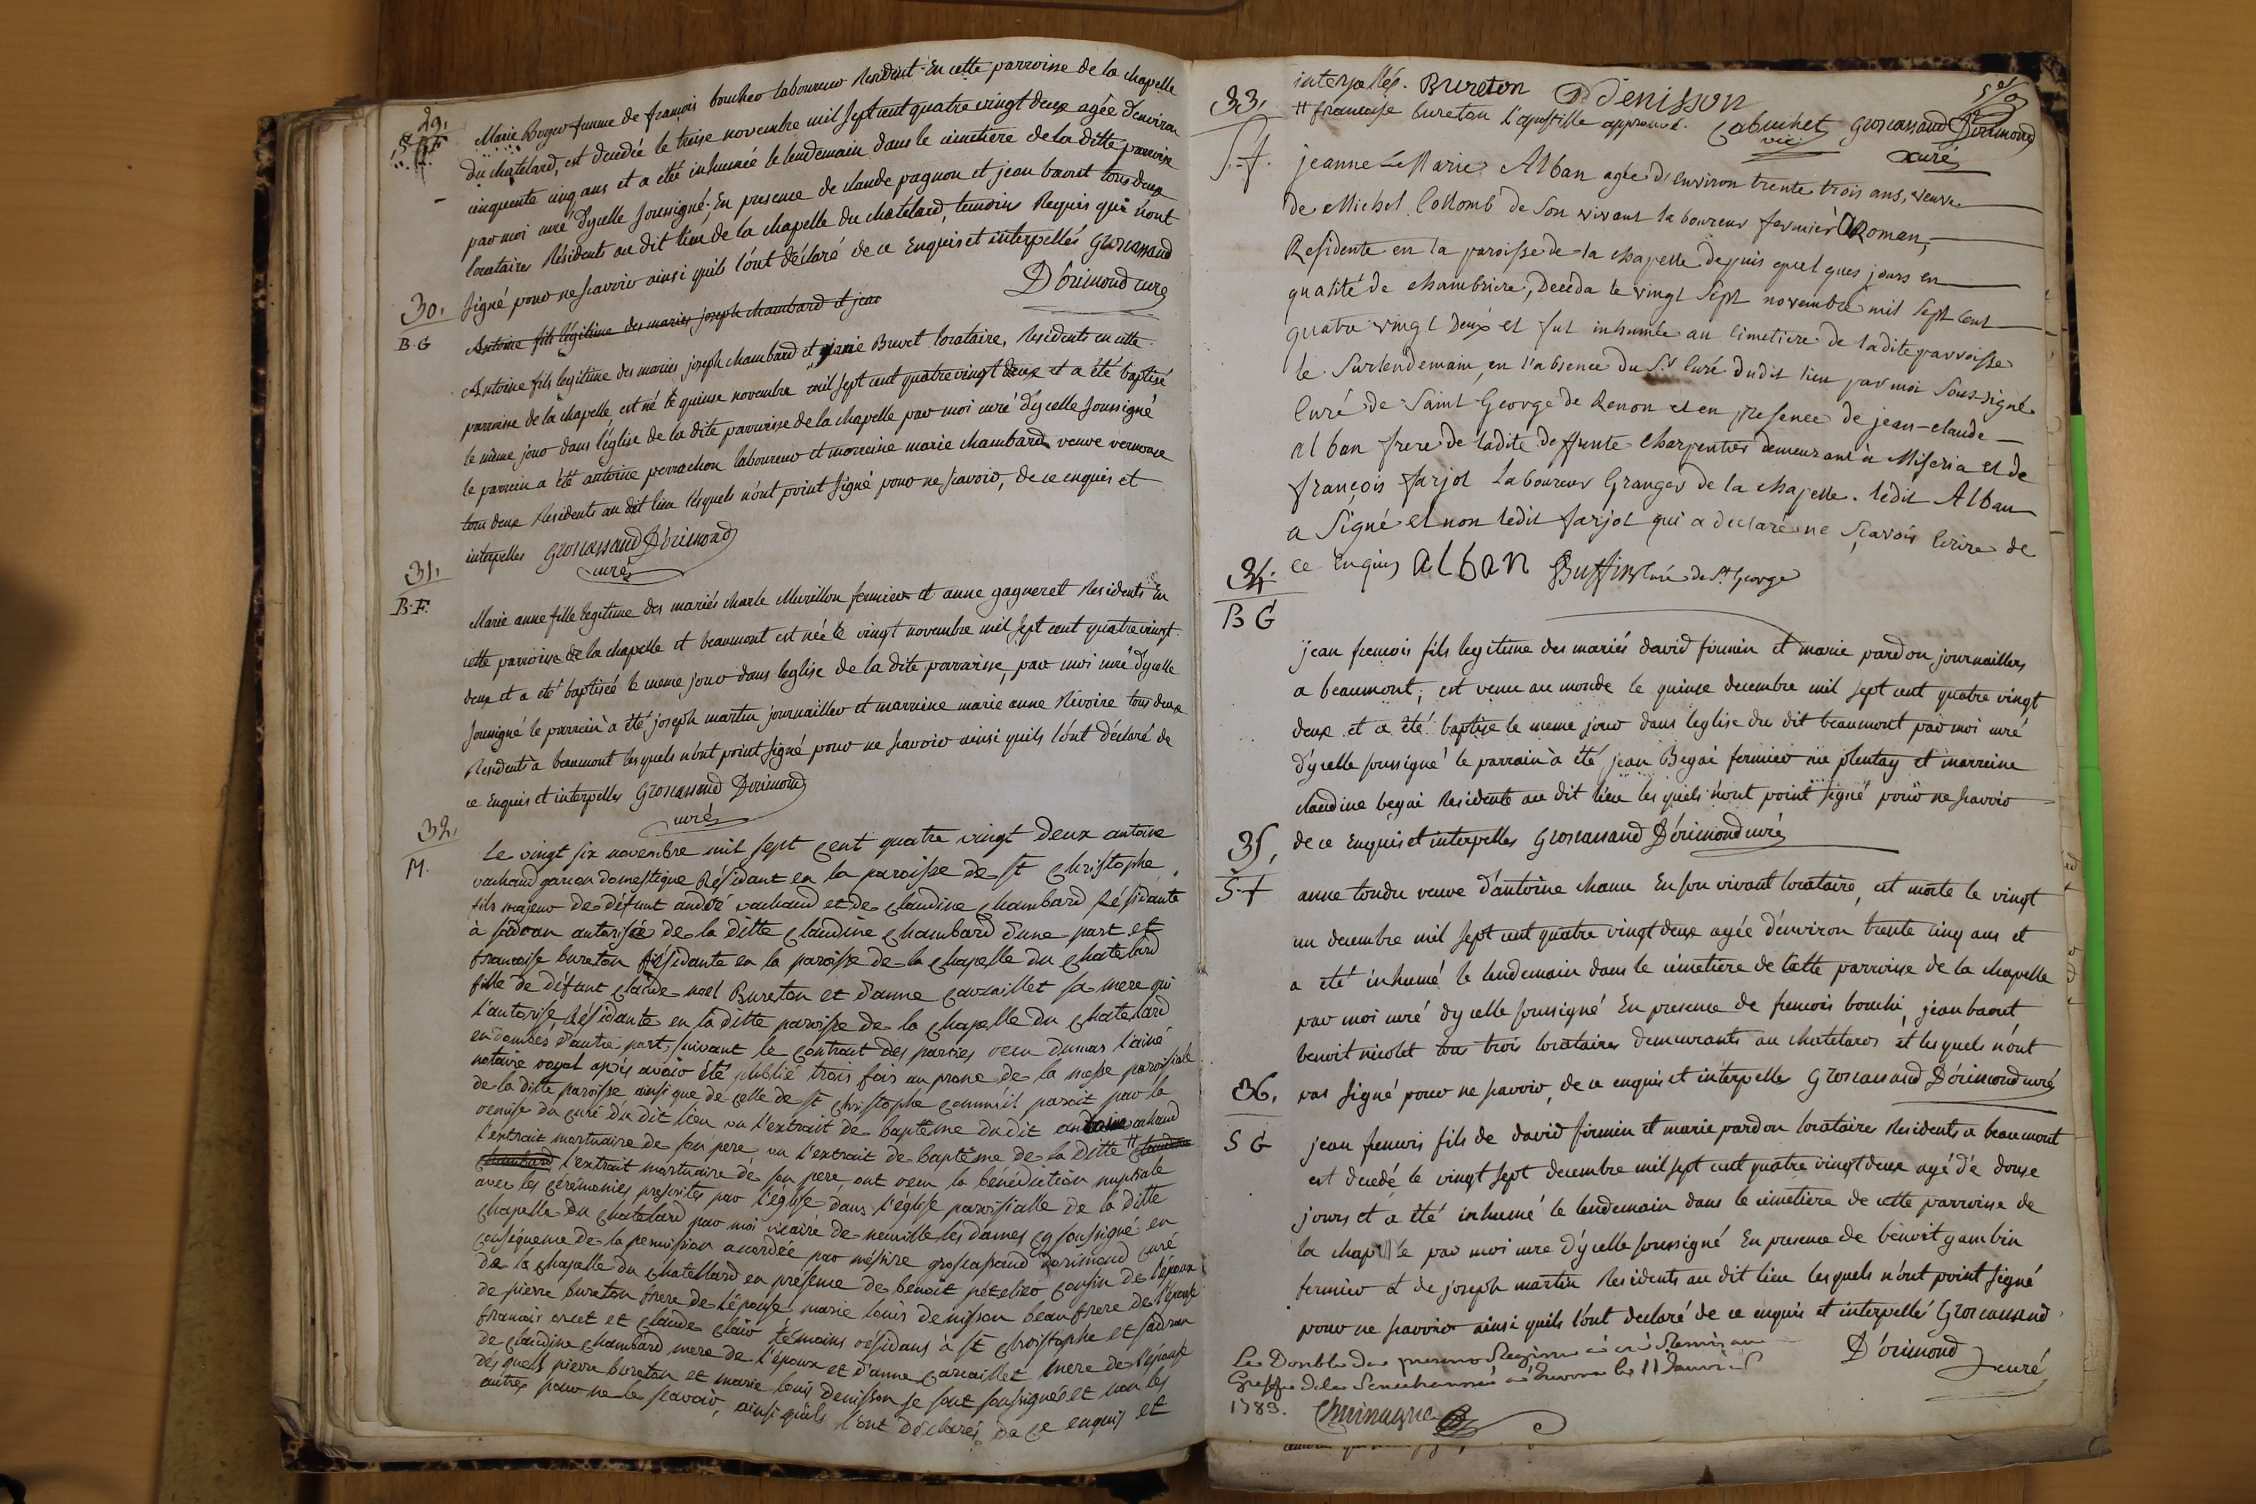 29.
S.F.
Marie Boyer femme de françois boucher laboureur Residant En cette parroisse de la chapelle
du chatelard, est decedée le treise novembre mil sept cent quatre vingt deux agée d'environ
cinquente cinq ans et a été inhumée le lendemain dans le cimetiere de la ditte parroisse
par moi curé d'ycelle soussigné; En presence de claude pagnon et jean baout tous deux
locataires Résidents au dit lieu de la chapelle du chatelard, temoins Requis qui n'ont
signé pour ne scavoir ainsi quils l'ont déclaré de ce Enquis et interpellés Groscassand
D'orimond curé
30.
B.G
Antoine fils légitime des mariés joseph chambard et jean
Antoine fils legitime des mariés joseph chambard et Buvet locataire, Residents en cette
parroisse de la chapelle, est né le quinse novembre mil sept cent quatre vingt deux et a été baptisé
le même jour dans l'église de la dite parroisse de la chapelle par moi curé d'ycelle soussigné
le parrein a été antoine perrachon laboureur et marreine marie chambard veuve vernosse
tous deux Residents au dit lieu lesquels n'ont point signé pour ne scavoir, de ce enquis et
interpelles Groscassand D'orimond
curé
31.
B.F.
Marie anne fille legitime des mariés charle Murillon fermier et anne gagneret Residents En
cette parroisse de la chapelle et beaumont est née le vingt novembre mil sept cent quatre vingt
deux et a été baptisée le meme jour dans leglise de la dite parroisse, par moi curé d'ycelle
soussigné le parrein à été joseph martin journaillier et marreine marie anne Révoire tous deux
Residents a beaumont lesquels n'ont point signé pour ne scavoir ainsi quils l'ont déclaré de
ce Enquis et interpelles Groscassand Dorimond
curé
32.
M.
Le vingt six novembre mil sept cent quatre vingt deux antoine
vachaud garcon domestique Résidant en la paroisse de st christophe,
fils majeur de défunt andré vachaud et de claudine chambard Résidante
à sadran autorisée de la ditte claudine chambard d'une part et
francoise bureton résidante en la paroisse de la chapelle du chatelard
fille de défunt claude noel Bureton et d'anne sa mere qui
l'autorise Résidante en la ditte paroisse de la chapelle du chatelard
en dombes d'autre part, suivant le contrat des parties recu dumas l'ainé
notaire royal après avoir été publié trois fois au prone de la messe paroissiale
de la ditte paroisse ainsi que de celle de st christophe comme il paroit par la
remise du curé du dit lieu vu l'extrait de baptême dudit antoine vachaud
l'extrait mortuaire de son pere, vu l'extrait de baptême de la ditte # claudine
chambard l'extrait mortuaire de son pere, ont recu la bénédiction nuptiale
avec les cérémonies prescrites par l'église dans l'église paroissialle de la ditte
chapelle du chatelard par moi vicaire de neuville les dames soussigné en
conséquence de la permission accordée par messire groscassand dorimond curé
de la chapelle du chatellard en présence de benoit petelier cousin de l'époux
de pierre bureton frere de l'épouse marie louis denisson beau frere de l'épouse
francois et claude clair témoins résidans à st christophe et sadran
de claudine chambard mere de l'époux et d'anne mere de l'épouse
desquels pierre bureton et marie louis denisson se sont soussignés et non les
autres pour ne le scavoir, ainsi quils l'ont déclarés de ce enquis et
interpellés. Bureton D Denisson
# francoise bureton l'apostille approuvé. Cabuchet Groscassand Dorimond
vic. curé
33.
S.F.
jeanne Marie Alban agée d'environ trente trois ans, veuve
de Michel Collomb de son vivant laboureur fermier a Roman,
Residente en la paroisse de la chapelle depuis quelques jours en
qualité de chambriere, deceda le vingt sept novembre mil sept cent
quatre vingt deux et fut inhumée au cimetiere de ladite parroisse
le surlendemain, en l'absence du Sr Curé dudit lieu par moi soussigné
Curé de Saint George de Renon et en presence de jean-claude
alban frere de ladite deffunte charpentier demeurant à Miseria et de
françois farjot Laboureur Granger de la chapelle. ledit Alban
a signé et non ledit farjot qui a declaré ne sçavoir ecrire de
ce Enquis alban Buffin Curé de St George
34.
B G
jean francois fils legitime des mariés david firmin et marie pardon journaillers
a beaumont, est venu au monde le quinse decembre mil sept cent quatre vingt
deux et a été baptise le meme jour dans leglise du dit beaumont par moi curé
d'ycelle soussigné le parrain à été jean Begai fermier au plentay et marreine
claudine begai Residente au dit lieu lesquels n'ont point signé pour ne scavoir
de ce Enquis et interpelles Groscassand D'orimond curé
35.
S.F
anne tondu veuve d'antoine chanu En son vivant locataire, est morte le vingt
un decembre mil sept cent quatre vingt deux agée d'environ trente cinq ans et
a été inhumé le lendemain dans le cimetiere de cette parroisse de la chapelle
par moi curé dycelle soussigné En presence de francois bouchi, jean baout
benoit nicolet tous trois locataires demeurants au chatelard et lesquels n'ont
pas signé pour ne scavoir, de ce enquis et interpelles Groscassand D'orimond curé
36.
S G
jean francois fils de david firmin et marie pardon locataires Residents a beaumont
est decedé le vingt sept decembre mil sept cent quatre vingt deux agé de douse
jours et a été inhumé le lendemain dans le cimetiere de cette parroisse de
la chapelle par moi curé d'ycelle soussigné En presence de benoit gambin
fermier et de joseph martin Residents au dit lieu lesquels n'ont point signé
pour ne scavoir ainsi quils l'ont declaré de ce enquis et interpellé Groscassand
D'orimond
curé
Le Double du present Registre a été Remis au
Greffe de la Senechaussée de le 11 Janvier
1783.